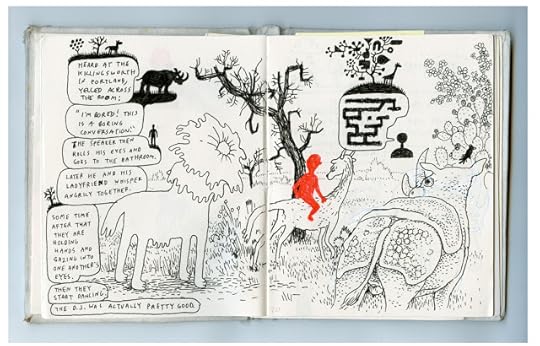 HEARD AT THE
KILLINGSWORTH
IN PORTLAND,
YELLED ACROSS
THE ROOM:
"I'M BORED! THIS
IS A BORING
CONVERSATION."
THE SPEAKER THEN
ROLLS HIS EYES AND
GOES TO THE BATHROOM.
LATER HE AND HIS
LADYFRIEND WHISPER
ANGRILY TOGETHER.
SOME TIME
AFTER THAT
THEY ARE
HOLDING
HANDS AND
GAZING INTO
ONE ANOTHER'S
EYES.
THEN THEY
START DANCING.
THE D.J. WAS ACTUALLY PRETTY GOOD.